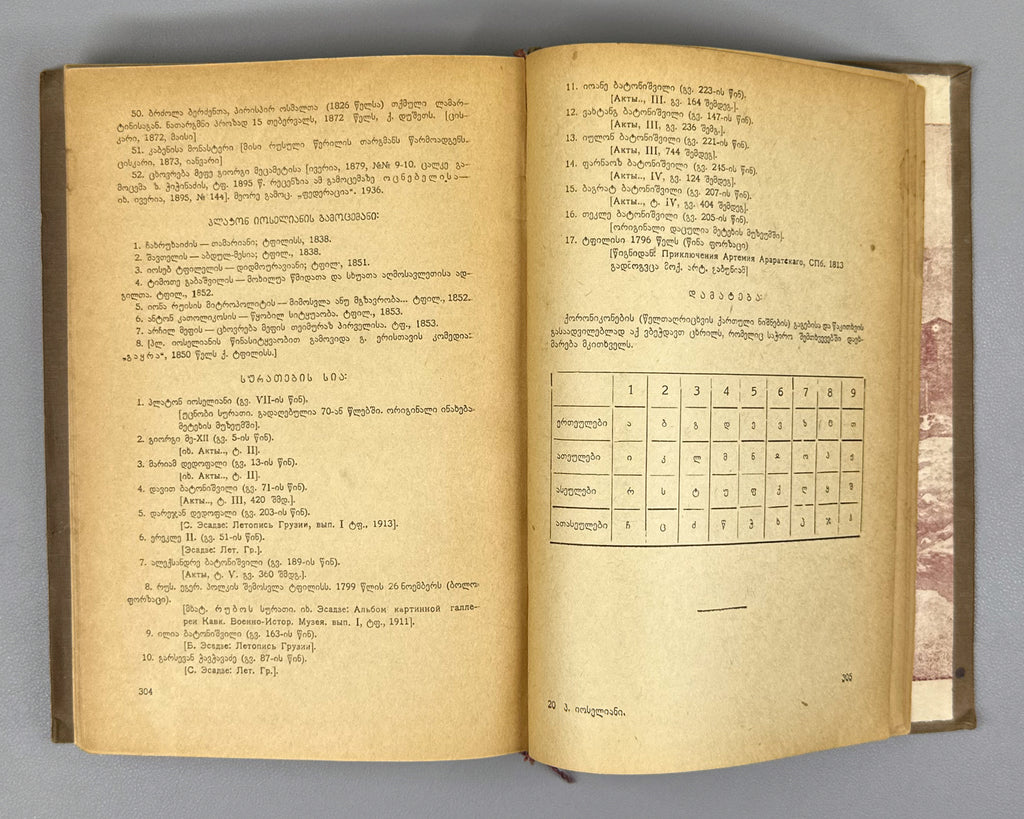 50. ბრძოლა ბერძენთა, პირისპირ ოსმალთა (1826 წელსა) თქმული ლამარ-
ტინისაგან. ნათარგმნი პროზად 15 თებერვალს, 1872 წელს, ქ. დუშეთს. [ცის-
კარი, 1872, მაისი]
51. კაბენისა მონასტერი [მისი რუსული წერილის თარგმანს წარმოადგენს.
ცისკარი, 1873, იანვარი]
52. ცხოვრება მეფე გიორგი მეცამეტისა [ივერია, 1879, №№ 9-10. ცალკე გა-
მოცემა ზ. ჭიჭინაძის, ტფ. 1895 წ. რეცენზია ამ გამოცემაზე ოცნებელისა—
იხ. ივერია, 1895, № 144]. მეორე გამოც. „ფედერაცია". 1936.
პლატონ იოსელიანის გამოცემანი:
1. ჩახრუხაიძის — თამარიანი; ტფილისს, 1838.
2. შავთელის — აბდულ-მესია; ტფილ., 1838.
3. იოსებ ტფილელის — დიდმოურავიანი; ტფილ., 1851.
4. ტიმოთე გაბაშვილის — მოხილუა წმიდათა და სხუათა აღმოსავლეთისა ად-
გილთა. ტფილ., 1852.
5. იონა რუისის მიტროპოლიტის — მიმოსვლა ანუ მგზავრობა... ტფილ., 1852.
6. ანტონ კათოლიკოსის — წყობილ სიტყუაობა. ტფილ., 1853.
7. არჩილ მეფის — ცხოვრება მეფის თეიმურაზ პირველისა. ტფ., 1853.
8. [პლ. იოსელიანის წინასიტყვაობით გამოვიდა გ. ერისთავის კომედია:
„გაყრა", 1850 წელს ქ. ტფილისს.]
სურათების სია:
1. პლატონ იოსელიანი (გვ. VII-ის წინ).
[უცნობი სურათი. გადაღებულია 70-ან წლებში. ორიგინალი ინახება-
მეტეხის მუზეუმში].
2. გიორგი მე-XII (გვ. 5-ის წინ).
[იხ. Акты.., ტ. II].
3. მარიამ დედოფალი (გვ. 13-ის წინ).
[იხ. Акты.., ტ. II].
4. დავით ბატონიშვილი (გვ. 71-ის წინ).
[Акты.., ტ. III, 420 შმდ.].
5. დარეჯან დედოფალი (გვ. 203-ის წინ).
[С. Эсадзе: Летопись Грузии, вып. I ტფ., 1913].
6. ერეკლე II. (გვ. 51-ის წინ).
[Эсадзе: Лет. Гр.].
7. ალექსანდრე ბატონიშვილი (გვ. 189-ის წინ).
[Акты, ტ. V. გვ. 360 შმდგ.].
8. რუს. ეგერ. პოლკის შემოსვლა ტფილისს. 1799 წლის 26 ნოემბერს (ბოლო-
ფორზაცი).
[მხატ. რუბოს სურათი. იხ. Эсадзе: Альбом картинной галле-
реи Кавк. Военно-Истор. Музея. вып. I, ტფ., 1911].
9. ილია ბატონიშვილი (გვ. 163-ის წინ).
[Б. Эсадзе: Летопись Грузии].
10. გარსევან ჭავჭავაძე (გვ. 87-ის წინ).
[С. Эсадзе: Лет. Гр.].
304
11. იოანე ბატონიშვილი (გვ. 223-ის წინ).
[Акты.., III. გვ. 164 შემდეგ.].
12. ვახტანგ ბატონიშვილი (გვ. 147-ის წინ).
[Акты, III, გვ. 236 შემგ.].
13. იულონ ბატონიშვილი (გვ. 221-ის წინ).
[Акты, III, 744 შემდეგ].
14. ფარნაოზ ბატონიშვილი (გვ. 245-ის წინ).
[Акты.., IV, გვ. 124 შემდეგ].
15. ბაგრატ ბატონიშვილი (გვ. 207-ის წინ).
[Акты.., ტ. IV, გვ. 404 შემდეგ].
16. თეკლე ბატონიშვილი (გვ. 205-ის წინ).
[ორიგინალი დაცულია მეტეხის მუზეუმში].
17. ტფილისი 1796 წელს (წინა ფორზაცი)
[წიგნიდან: Приключения Артемия Араратскаго, СПб. 1813
გადმოგვცა მოქ. არტ. გაბუნიამ]
დამატება:
ქორონიკონების (წელთაღრიცხვის ქართული ნიშნების) გაგებისა და წაკითხვის
გასაადვილებლად აქ ვბეჭდავთ ცხრილს, რომელიც საჭირო შემთხვევებში დაეხ-
მარება მკითხველს.
1 2 3 4 5 6 7 8 9
ერთეულები ა ბ გ დ ე ვ ზ ჱ თ
ათეულები ი კ ლ მ ნ ჲ ო პ ჟ
ასეულები რ ს ტ უ ფ ქ ღ ყ შ
ათასეულები ჩ ც ძ წ ჭ ხ ჴ ჯ ჰ
305
20 პ. იოსელიანი.